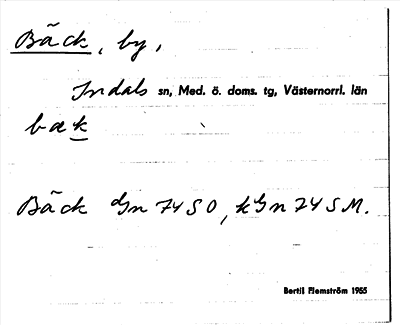 Bäck, by,
Indals sn, Med. ö. doms. tg, Västernorrl. län
bæk
Bäck Gn 74 SO, kGn 74 SM.
Bertil Flemström 1955